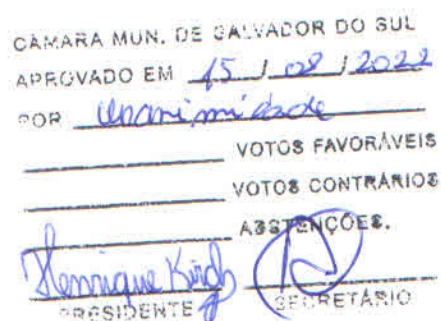 CÂMARA MUN. DE SALVADOR DO SUL
APROVADO EM 15 / 08 / 2022
POR Unanimidade
VOTOS FAVORÁVEIS
VOTOS CONTRÁRIOS
ABSTENÇÕES.
Henrique
PRESIDENTE SECRETÁRIO